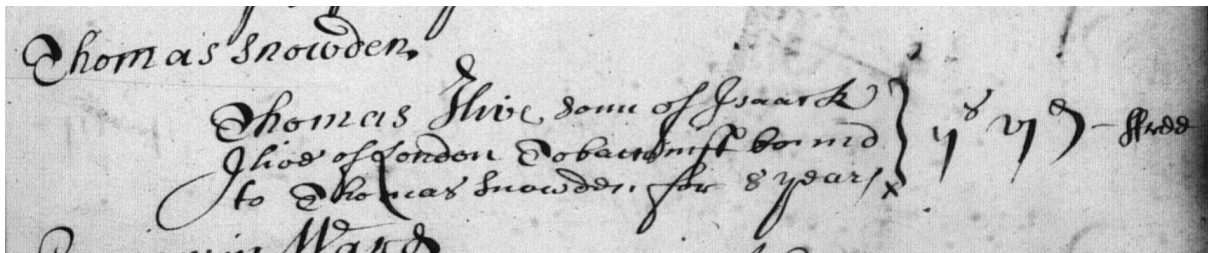 Thomas Snowden,
Thomas Ilive sonn of Isaack } ijs vjd - ffree
Ilive of London Tobacconist bound
to Thomas Snowden for 8 years
Ward